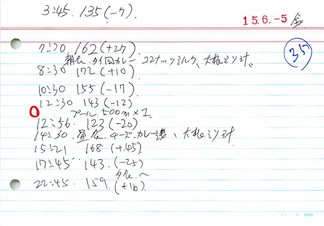 3:45. 135(-7)
15.6.-5 金
35
7:30 162(+27)
朝食、タイ風カレー ココナッツミルク、大根ミソ汁、
8:30 172(+10)
10:30 155(-17)
12:30 143(-12)
プール 500m×I
12:56 122(-20)
14:30. 昼食 キーマカレー、大根ミソ汁
15:21 168(+45)
17:45 143.(-25)
夕食へ
22:45. 159(+16)